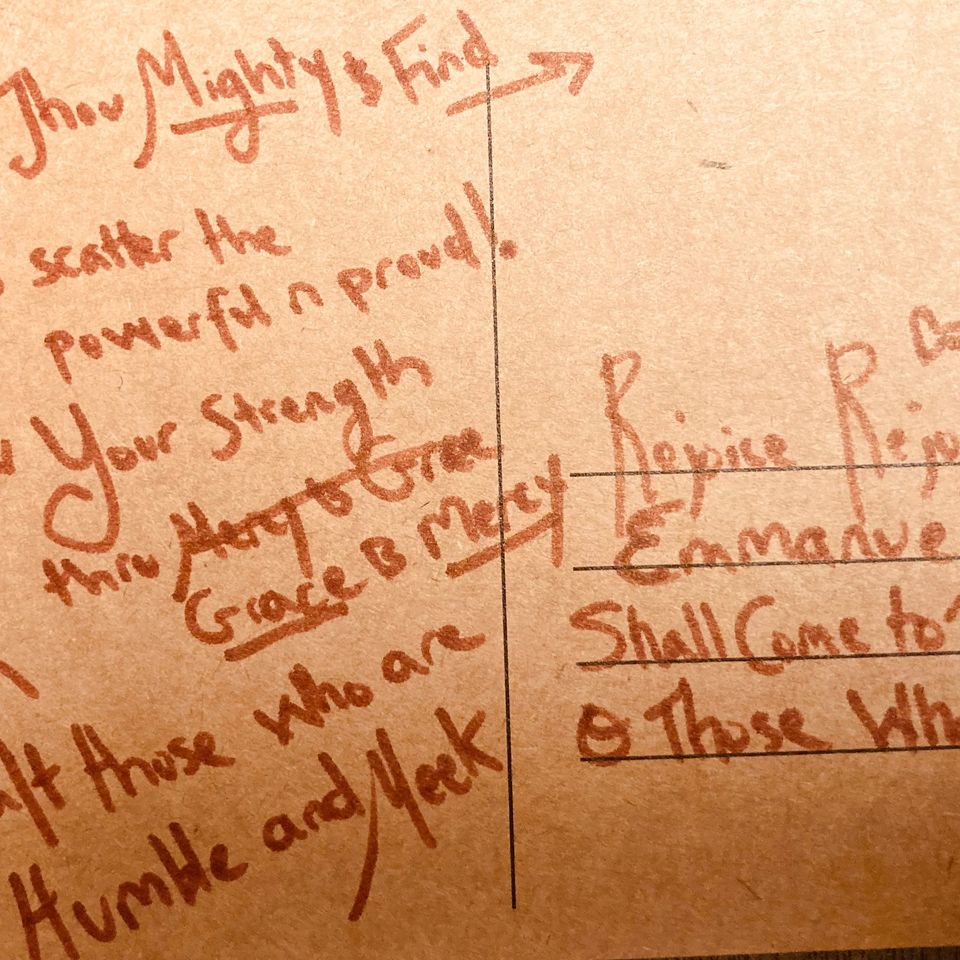 Thou Mighty & Find
scatter the
powerful n proud!.
Your Strength
thru Mercy to Grace
Grace & Mercy
those who are
Humble and Meek
Rejoice Rejo
Emmanue
Shall Come to
O Those Wh